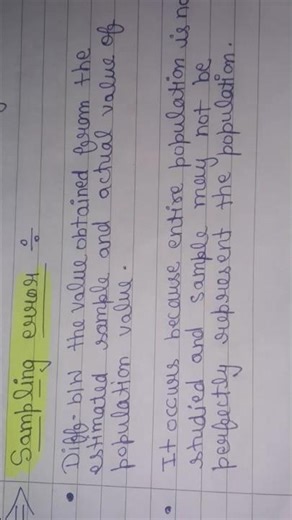 ⇒ Sampling error ÷
• Diff- b/w the value obtained from the
estimated sample and actual value of
population value.
• It occurs because entire population is no
studied and sample may not be
perfectly represent the population.